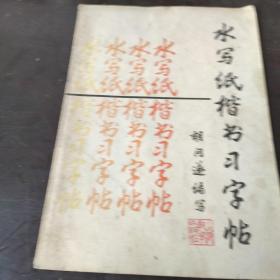 水写纸楷书习字帖
胡问遂 书写
水写纸楷书习字帖
水写纸楷书习字帖
水写纸楷书习字帖
水写纸楷书习字帖